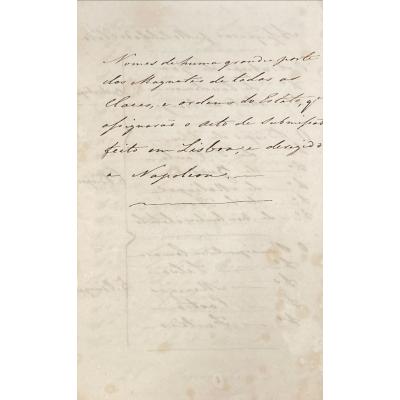 Nomes de huma grande parte
dos Magnates de todas as
Clases, e ordens do Estado, q̃
asignarão o acto de submisão
feito em Lisboa, e derigido
a Napoleon.